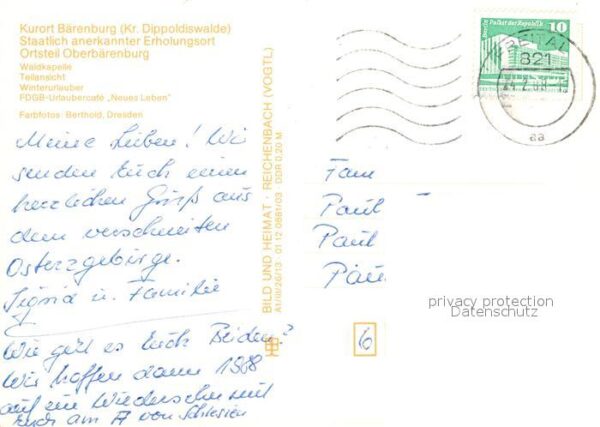 Kurort Bärenburg (Kr. Dippoldiswalde)
Staatlich anerkannter Erholungsort
Ortsteil Oberbärenburg
Waldkapelle
Teilansicht
Winterurlauber
FDGB-Urlaubercafé „Neues Leben"
Farbfotos: Berthold, Dresden
Meine Lieben! Wir
senden Euch einen
herzlichen Gruß aus
dem verschneiten
Osterzgebirge.
Sigrid u. Familie
Wie geht es Euch Beiden?
Wir hoffen dann 1988
auf ein Wiedersehn mit
Euch am A von Schlesien
BILD UND HEIMAT · REICHENBACH (VOGTL)
A1/III/26/13 01 12 0661/03 DDR 0,20 M
Berlin Palast der Republik
10
DDR
FREITAL
821
aa
Fam
Paul
Paul
Pau
6
privacy protection
Datenschutz